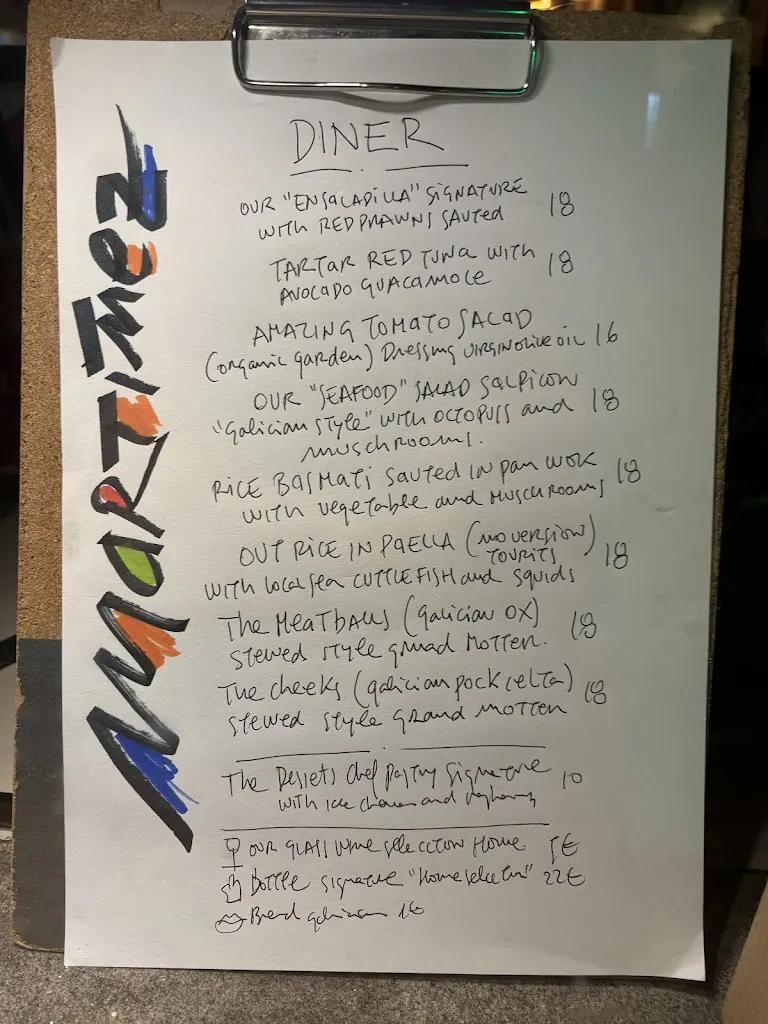 MARTINEZ
DINER
OUR "ENSALADILLA" SIGNATURE
WITH RED PRAWNS SAUTED 18
TARTAR RED TUNA WITH
AVOCADO GUACAMOLE 18
AMAZING TOMATO SALAD
(organic garden) Dressing VIRGIN OLIVE OIL 16
OUR "SEAFOOD" SALAD SALPICON
"Galician Style" WITH OCTOPUSS and 18
muschrooms.
RICE BASMATI SAUTED IN pan WOK
WITH vegetable and MUSCHROOMS 18
OUT RICE IN PAELLA (NO VERSION)
TOURITS
WITH local sea CUTTLEFISH and squids 18
The MeatBALLS (galician OX)
Stewed style grnad Motter. 18
The cheeks (galician pock celta)
Stewed style Grand motter 18
The Dessets Chef Pastry Signature 10
with ice cream and
OUR GLASS Wine selection Home 5€
Bottle signature "Home selection" 22€
Bread galician